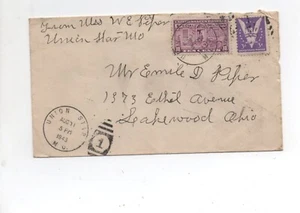 From Mrs W E Piper
Union Star Mo
Mr Emile D Piper
1373 Ethel Avenue
Lakewood Ohio
UNION STAR
AUG
PM
1943
MO.
1